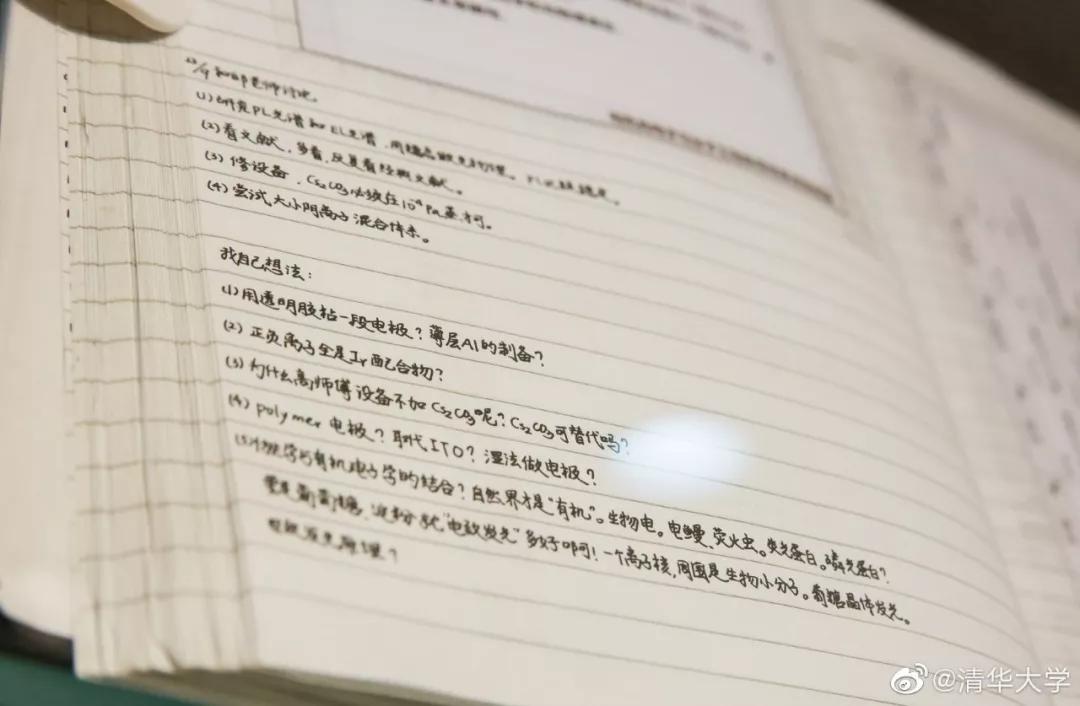 (1) 研究PL光谱和EL光谱,用
(2) 看文献,多看,反复看经典文献。
(3) 修设备,Cs₂CO₃必须在10⁻⁴Pa蒸才可。
(4) 尝试大小阴离子混合体系。
我自己想法:
(1) 用透明胶粘一段电极?薄层Al的制备?
(2) 正负离子全是Ir配合物?
(3) 为什么高师傅设备不加Cs₂CO₃呢?Cs₂CO₃可替代吗?
(4) polymer电极?取代ITO?湿法做电极?
(5) 生物学与有机电子学的结合?自然界才是“有机”。生物电。电鳗、荧火虫。荧光蛋白。磷光蛋白?
要是葡萄糖、淀粉就“电致发光”多好啊!一个离子核,周围是生物小分子。葡糖晶体发光。
电致发光原理?
@清华大学